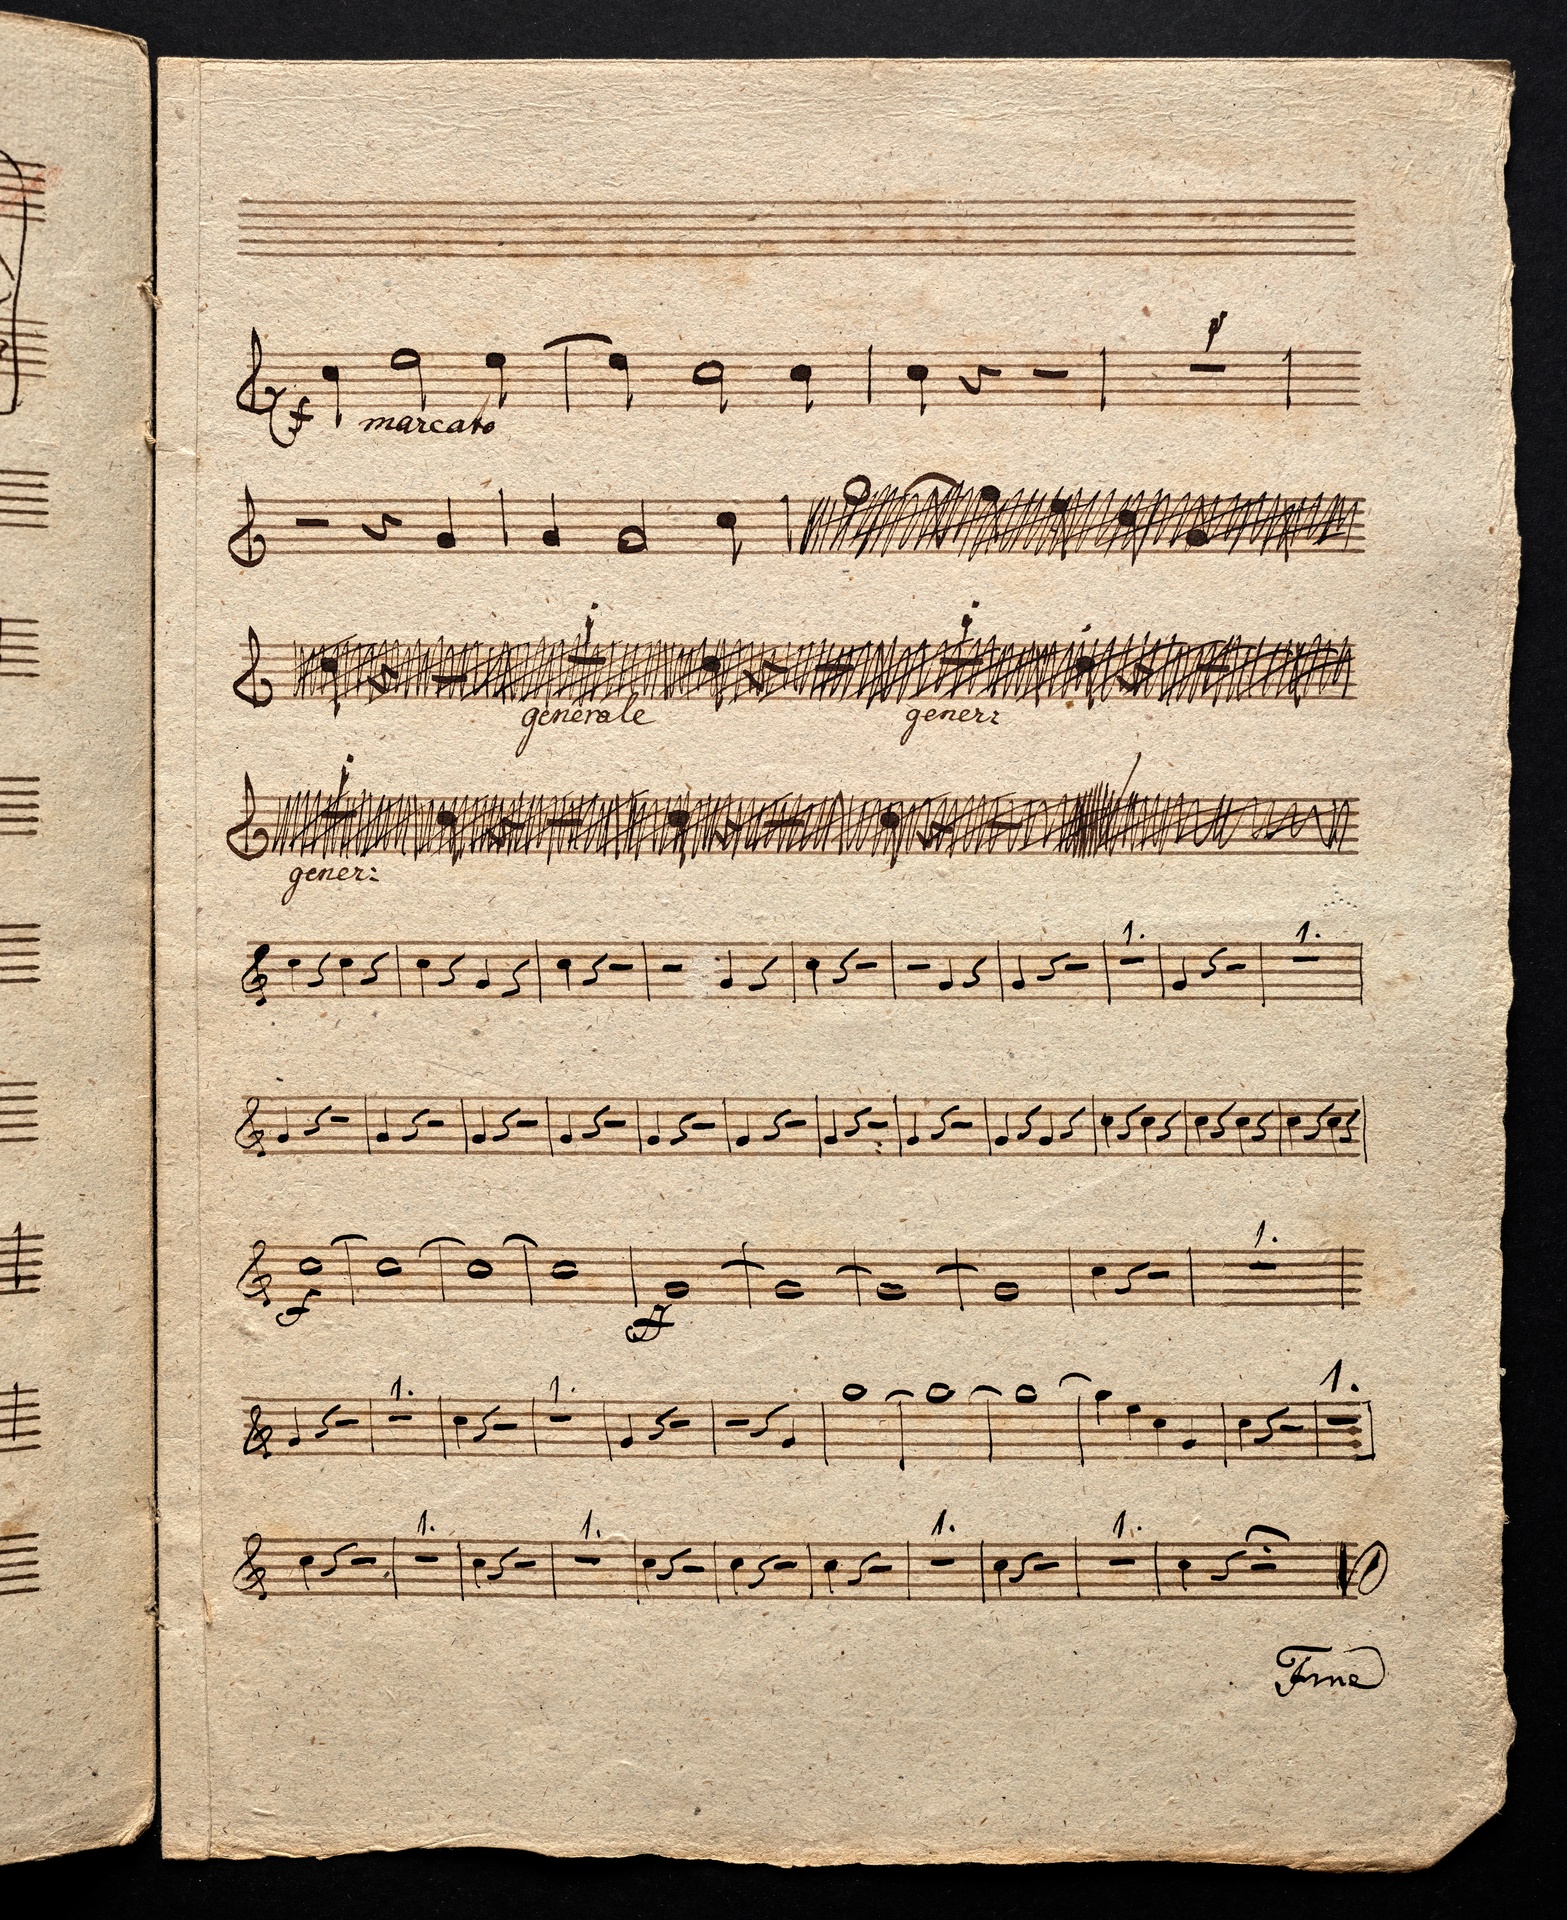 f marcato
generale gener:
gener:
1. 1.
1.
f ff
1. 1. 1.
1. 1. 1. 1.
Fine